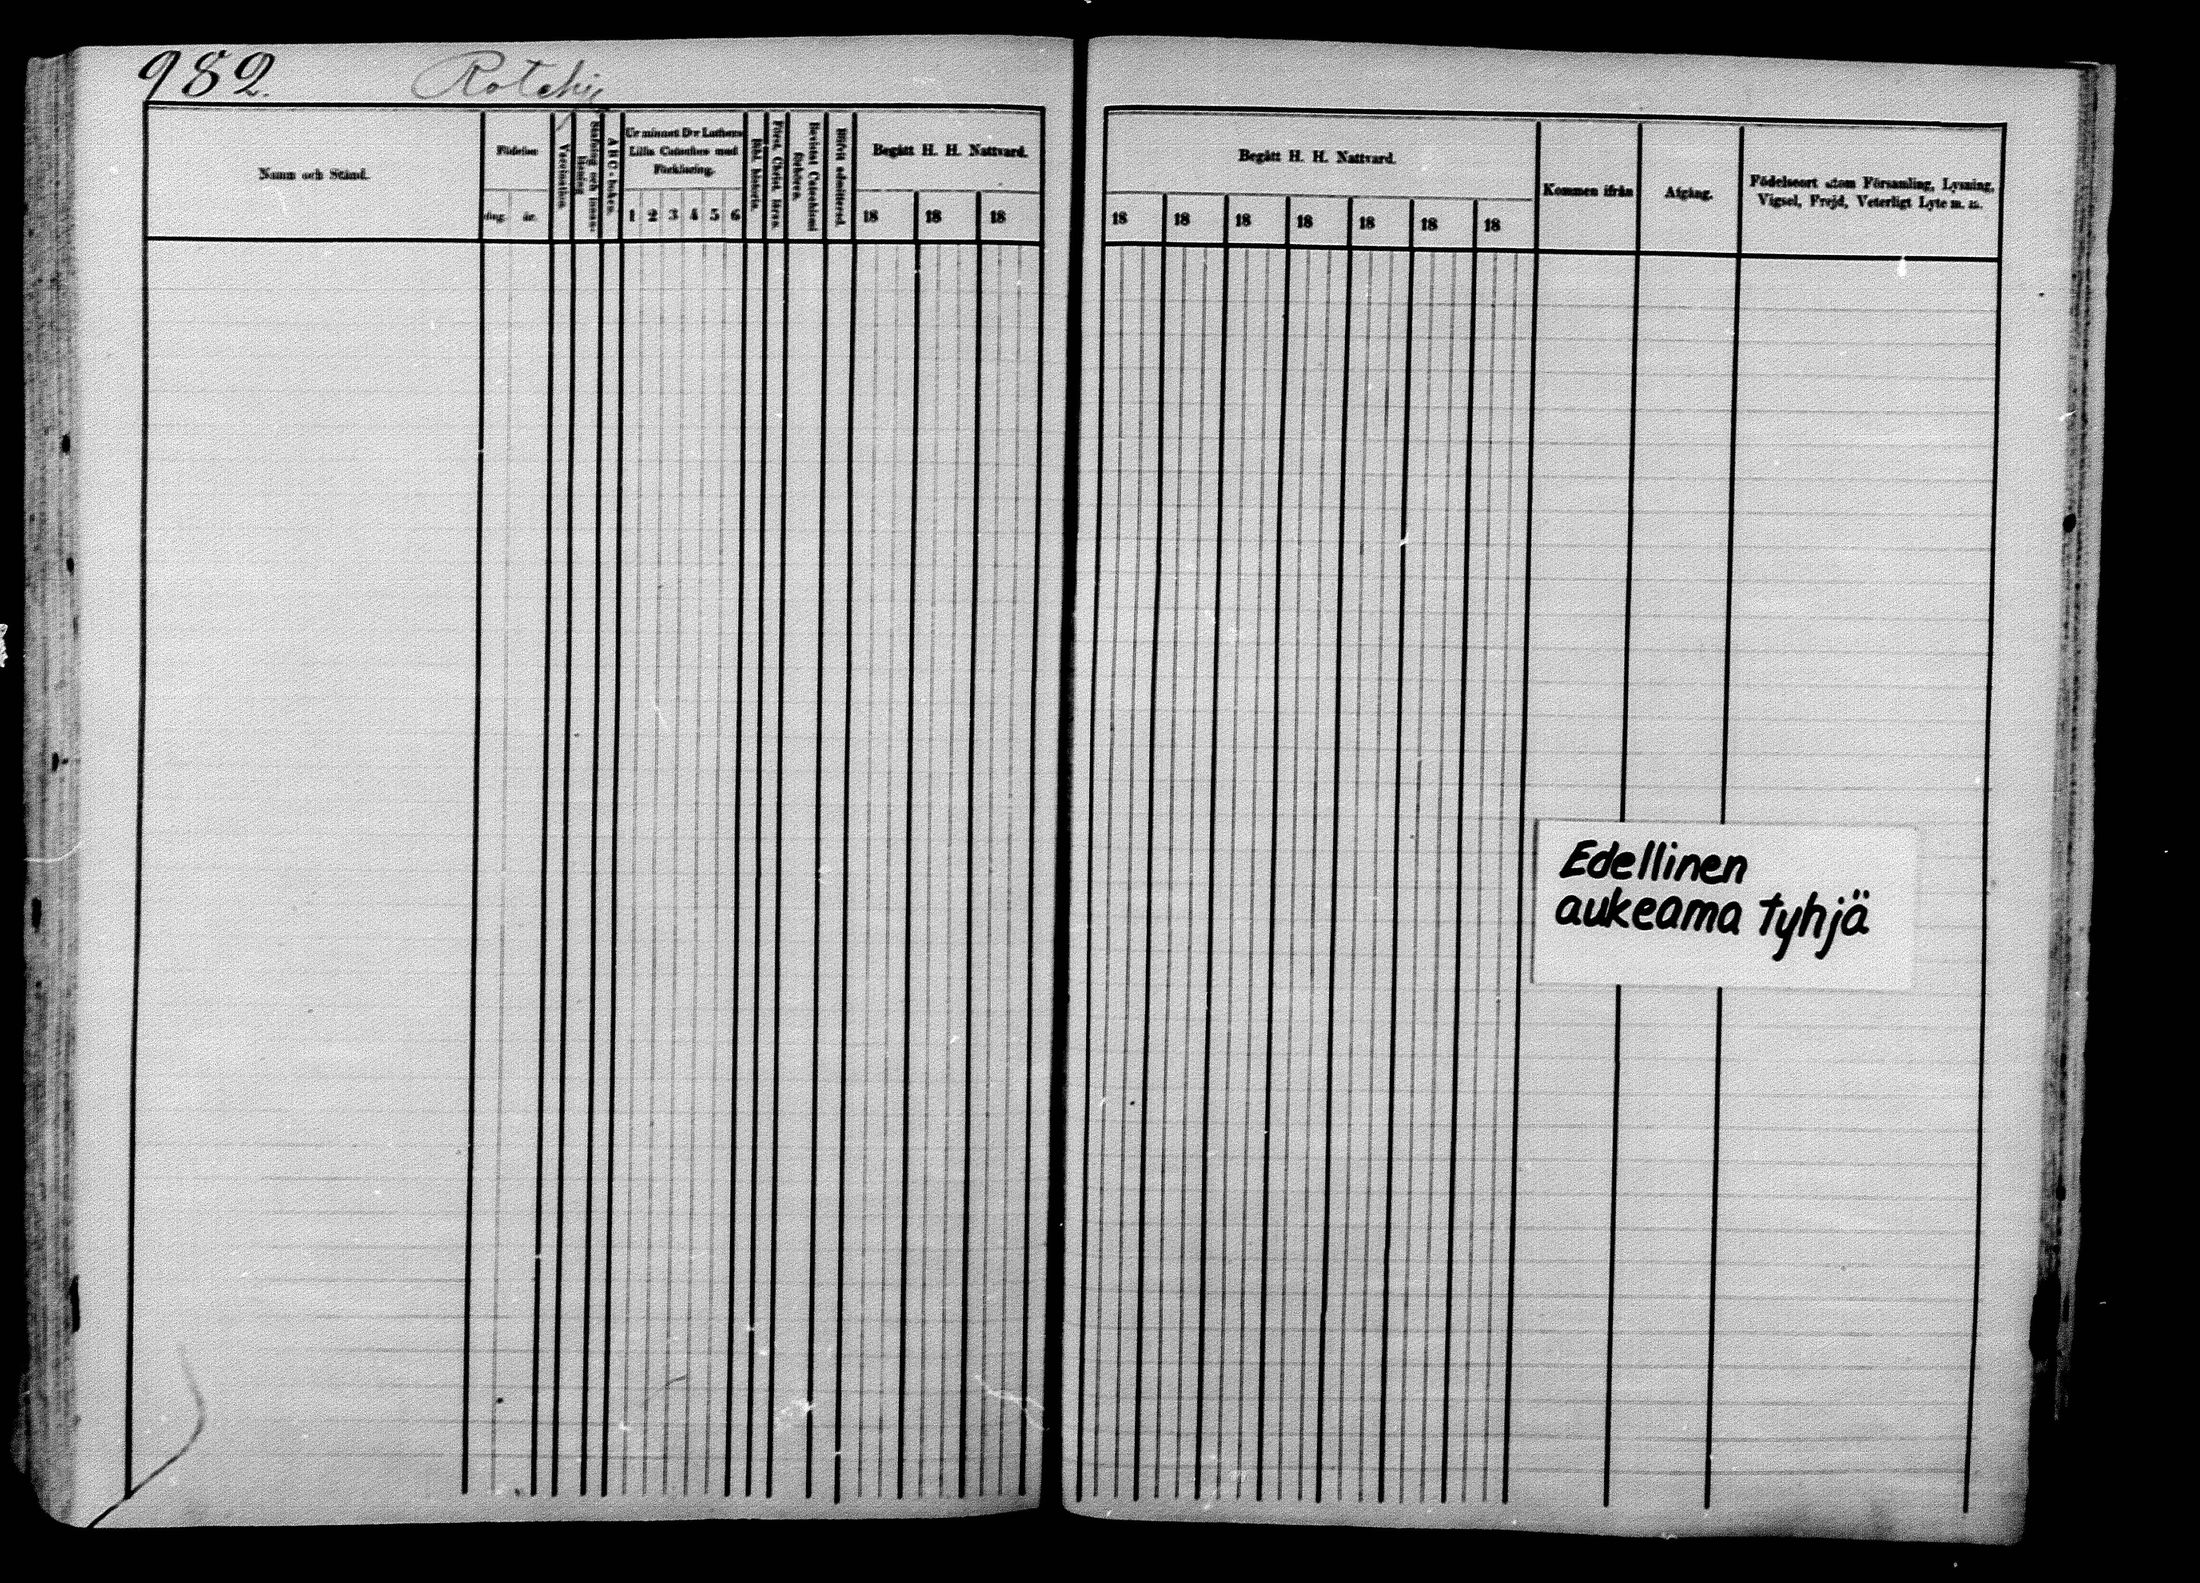 982.
Namn och Stånd.
Födelse
dag.
år.
Vaccination.
A B C-boken.
Ur minnet D:r Luthers
Lilla Cateches med
Förklaring.
1 2 3 4 5 6
Bibl. historia.
Blifvit admitterad.
Begått H. H. Nattvard.
18 18 18
Begått H. H. Nattvard.
18 18 18 18 18 18 18
Kommen ifrån
Afgång.
Födelseort utom Församling, Lysning,
Vigsel, Frejd, Veterligt Lyte m. m.
Edellinen
aukeama tyhjä